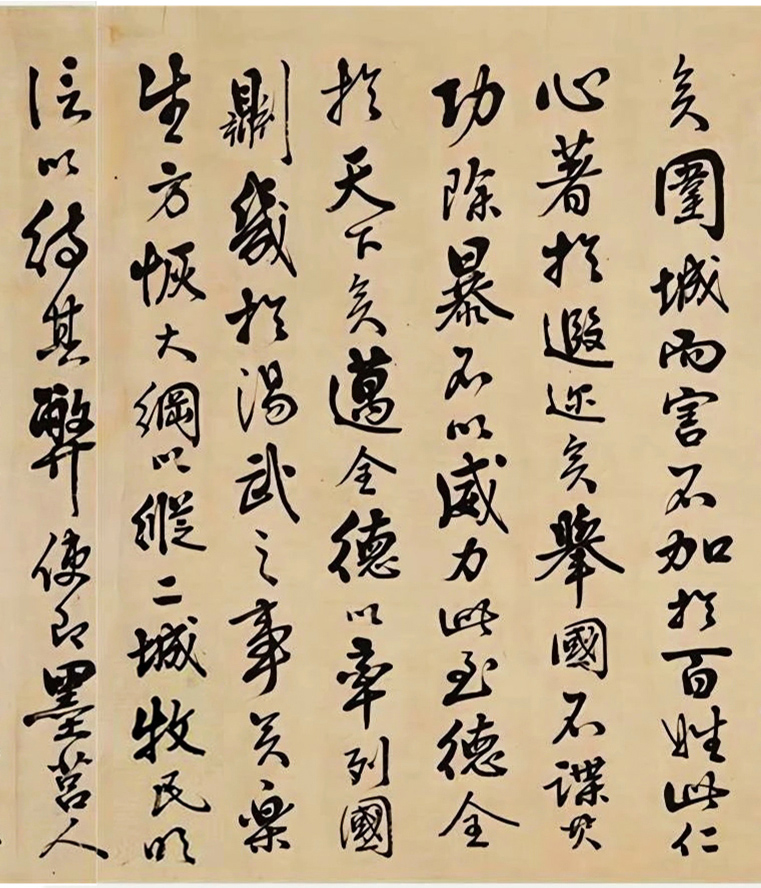 矣圍城而害不加於百姓此仁
心著於遐迩矣舉國不謀其
功除暴不以威力此至德全
於天下矣邁全德以率列國
則幾於湯武之事矣樂
生方恢大綱以縱二城牧民明
信以待其弊使即墨莒人